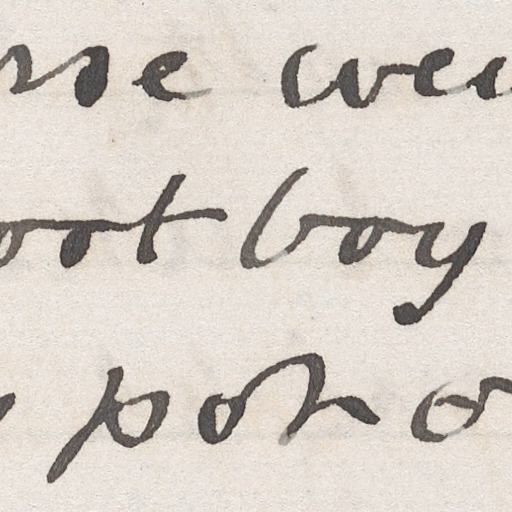 rse wer
oot boy
por o